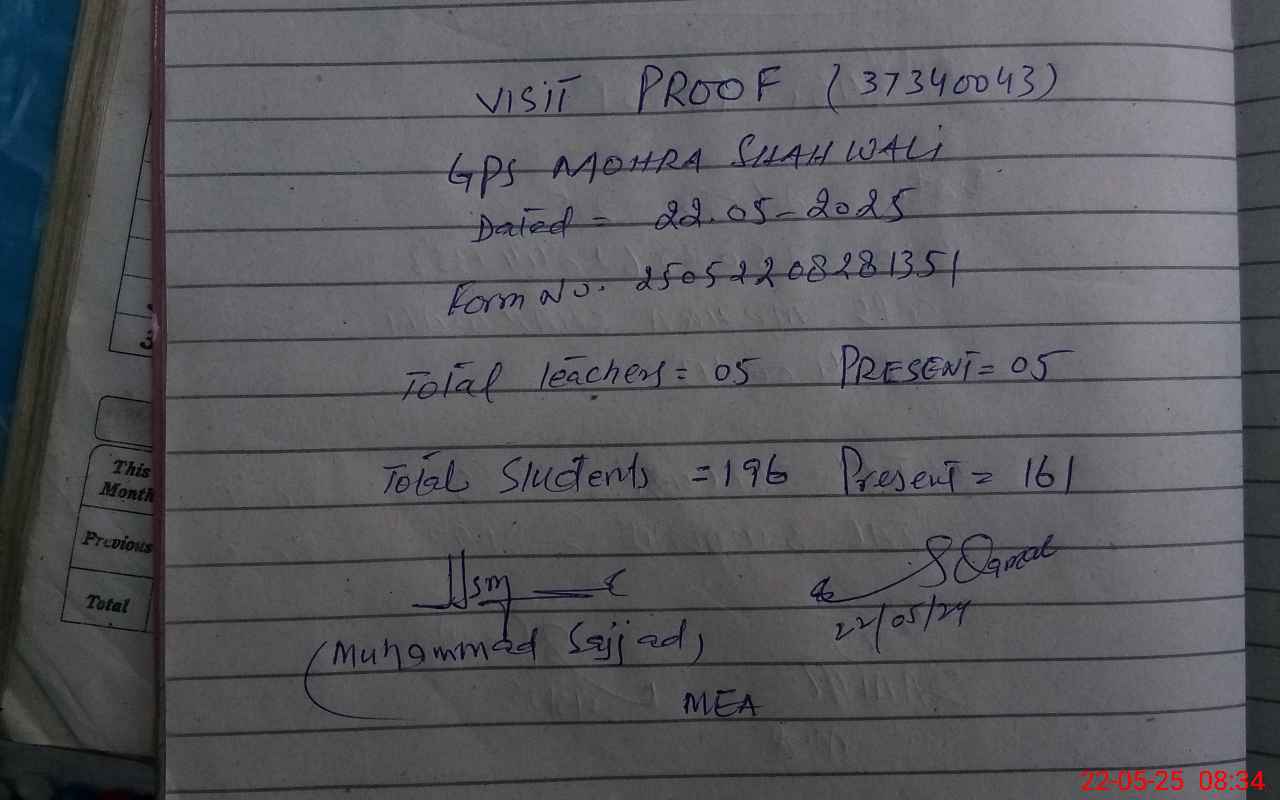 VISIT PROOF (37340043)
GPS MOHRA SHAH WALI
Dated = 22.05-2025
Form No. 25052208281351
Total Teachers = 05 PRESENT = 05
Total Students = 196 Present = 161
22/05/24
(Muhammad Sajjad)
MEA
3
This
Month
Previous
Total
22-05-25 08:34